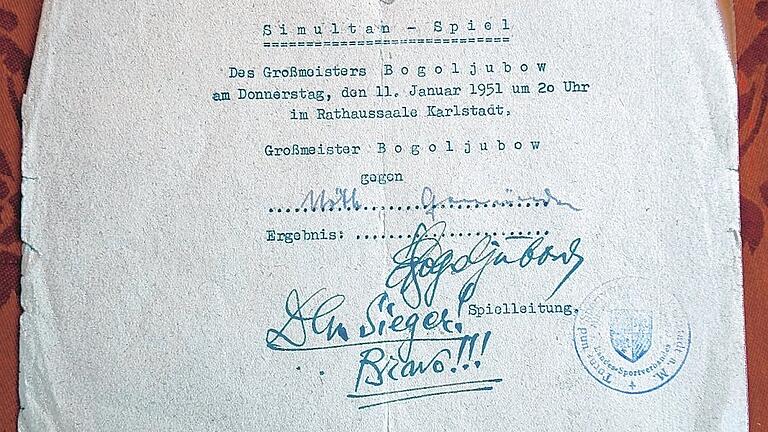 Simultan - Spiel
Des Großmeisters Bogoljubow
am Donnerstag, den 11. Januar 1951 um 20 Uhr
im Rathaussaale Karlstadt.
Großmeister Bogoljubow
gegen
Gemünden
Ergebnis: ......................
Bogoljubow
Spielleitung.
Dem Sieger!
Bravo!!!
Turn- und
Landes-Sportverband
stadt a. M.